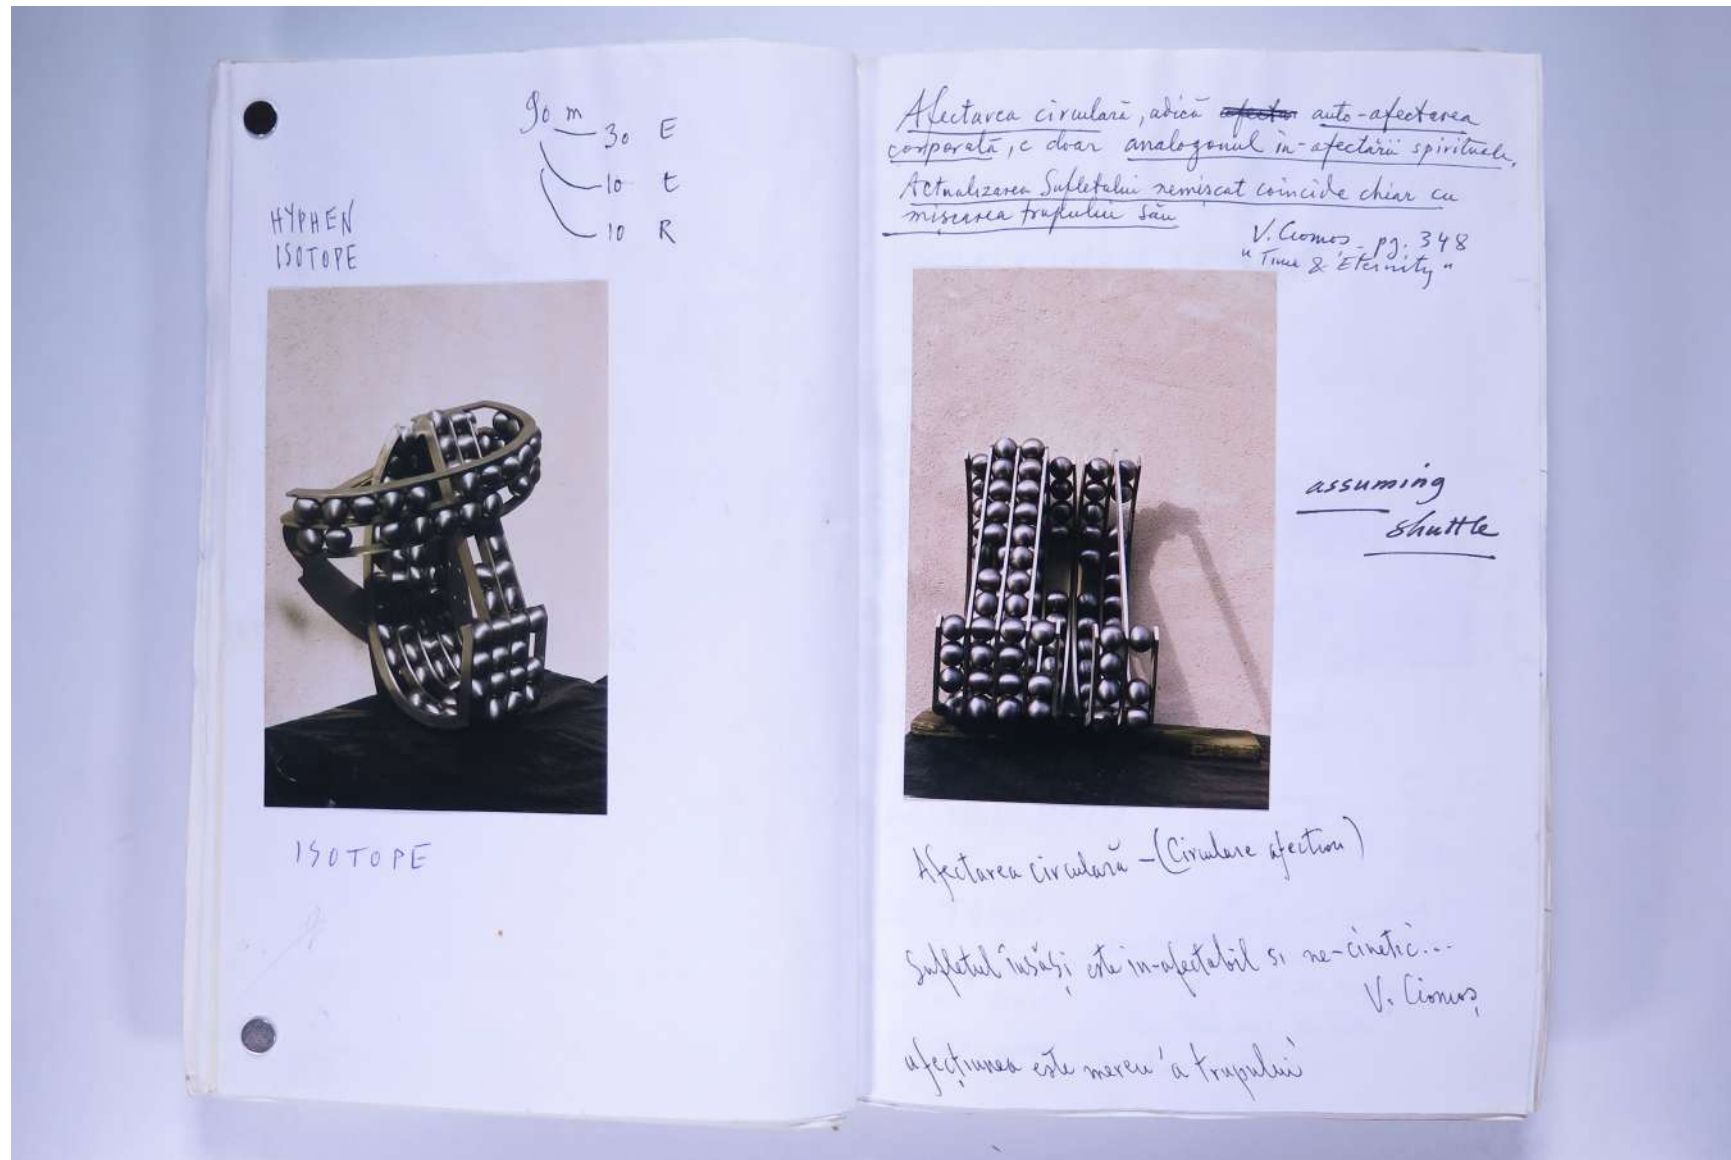 90 m
30 E
10 t
10 R
HYPHEN
ISOTOPE
ISOTOPE
Afectarea circulară, adică auto-afectarea
corporală, e doar analogonul in-afectării spirituale.
Actualizarea Sufletului nemișcat coincide chiar cu
mișcarea trupului său
V. Ciomoș - pg. 348
"Time & Eternity"
assuming
shuttle
Afectarea circulară - (Circulare afection)
Sufletul însăși este in-afectabil si ne-cinetic...
V. Ciomoș
afecțiunea este mereu 'a trupului'